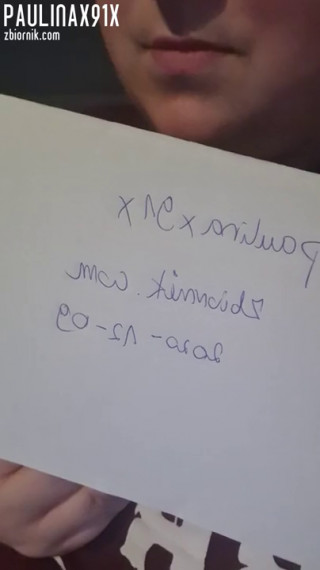 PAULINAX91X
zbiornik.com
Paulina x 91 x
Zbiornik.com
2020-12-09